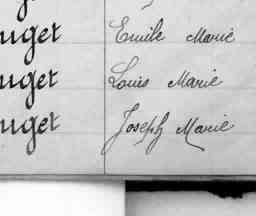 uget Emile Marie
uget Louis Marie
uget Joseph Marie